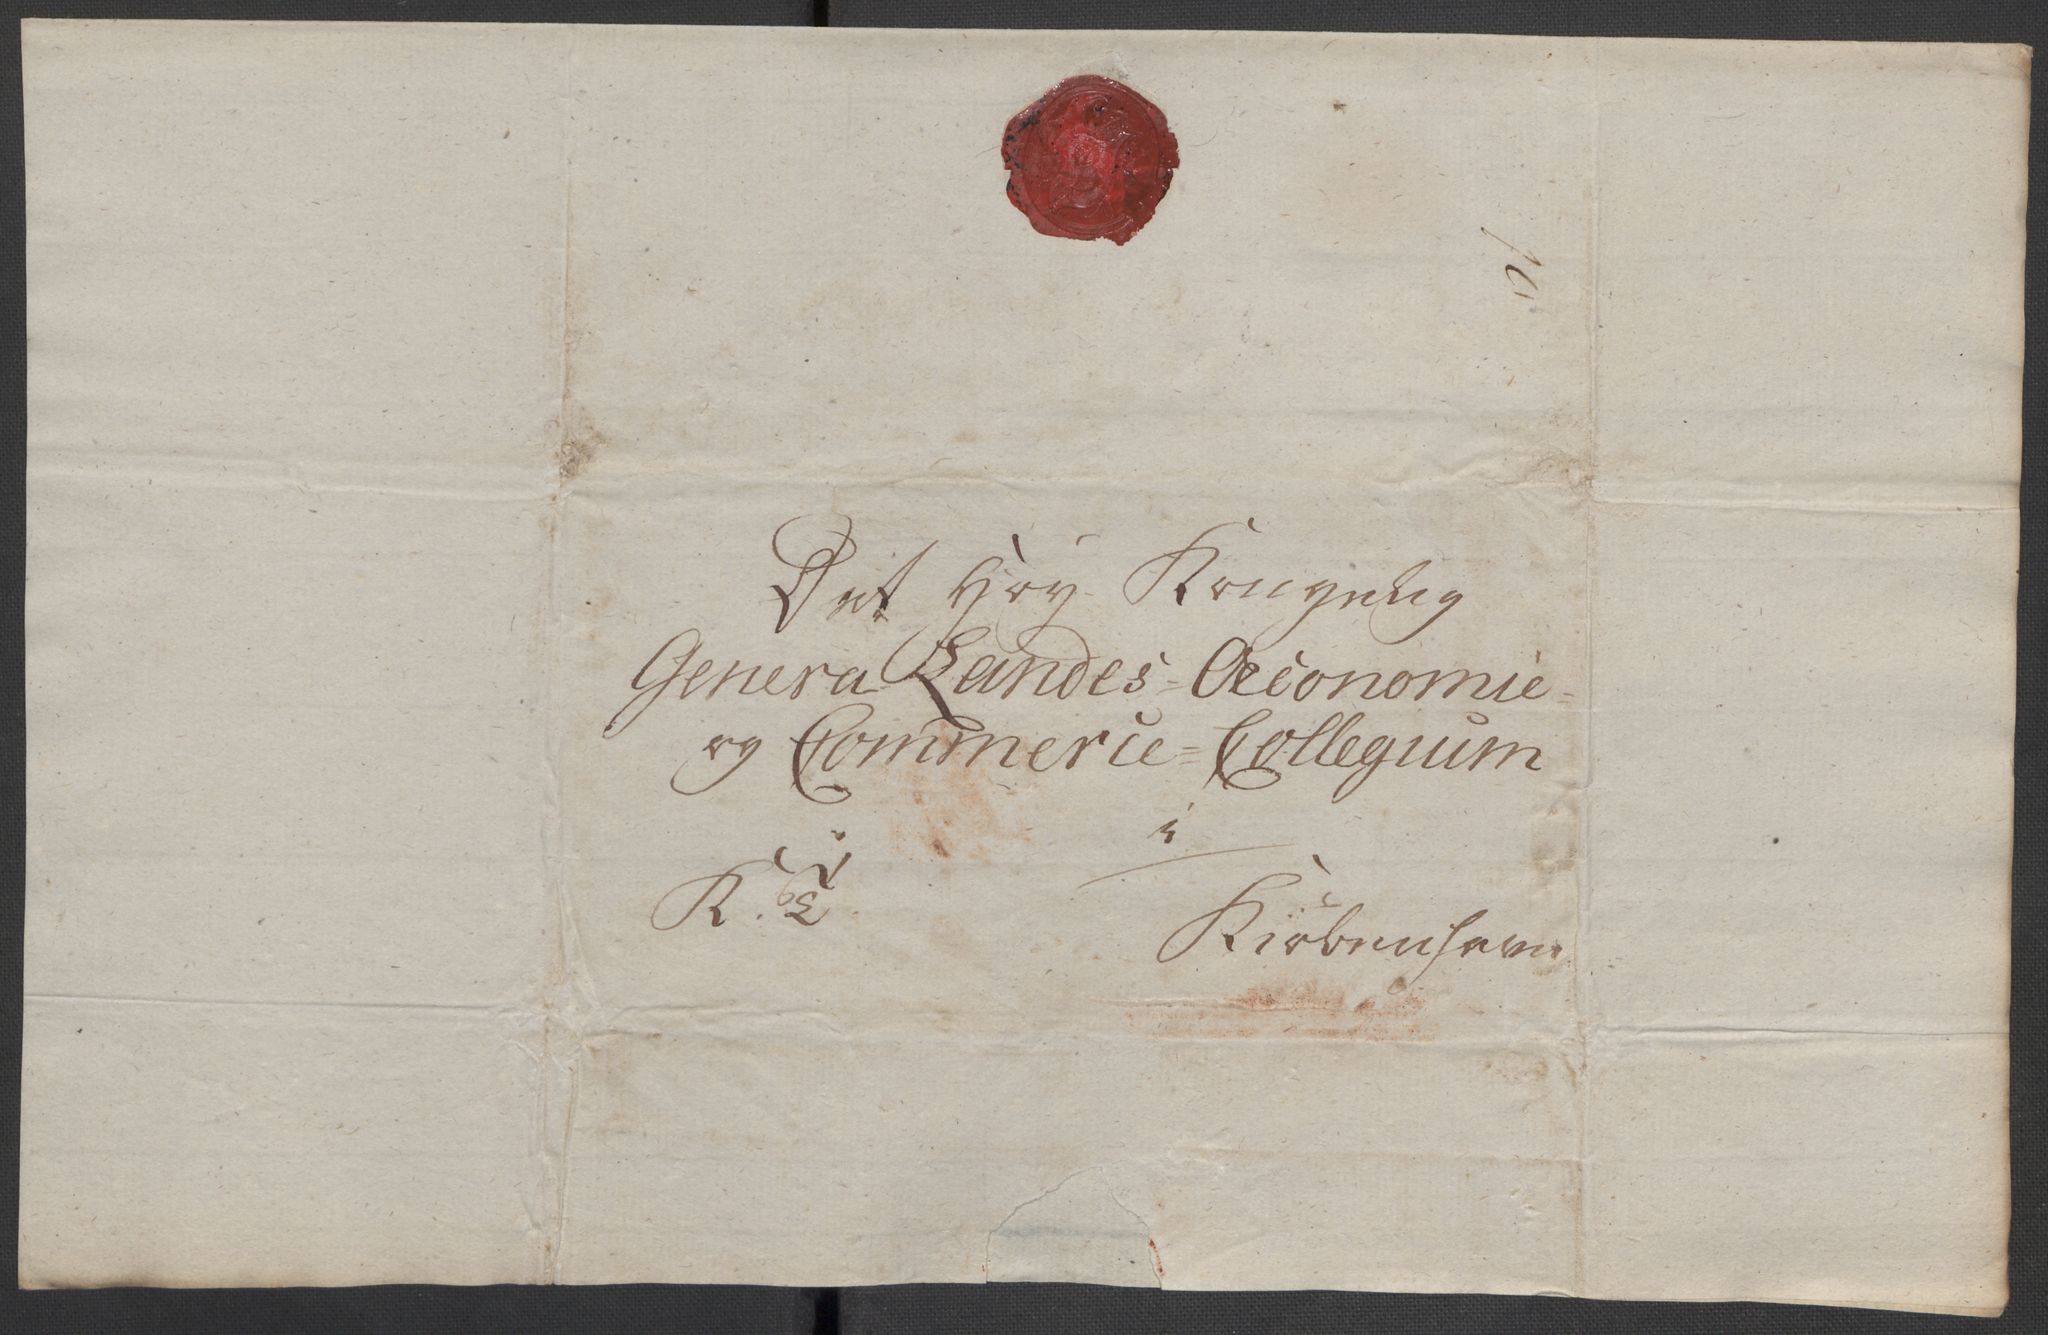 10
Det Høy Kongelig
General Landes- Oeconomie-
og Commerce- Collegium
i
K. T.
Kiøbenhavn